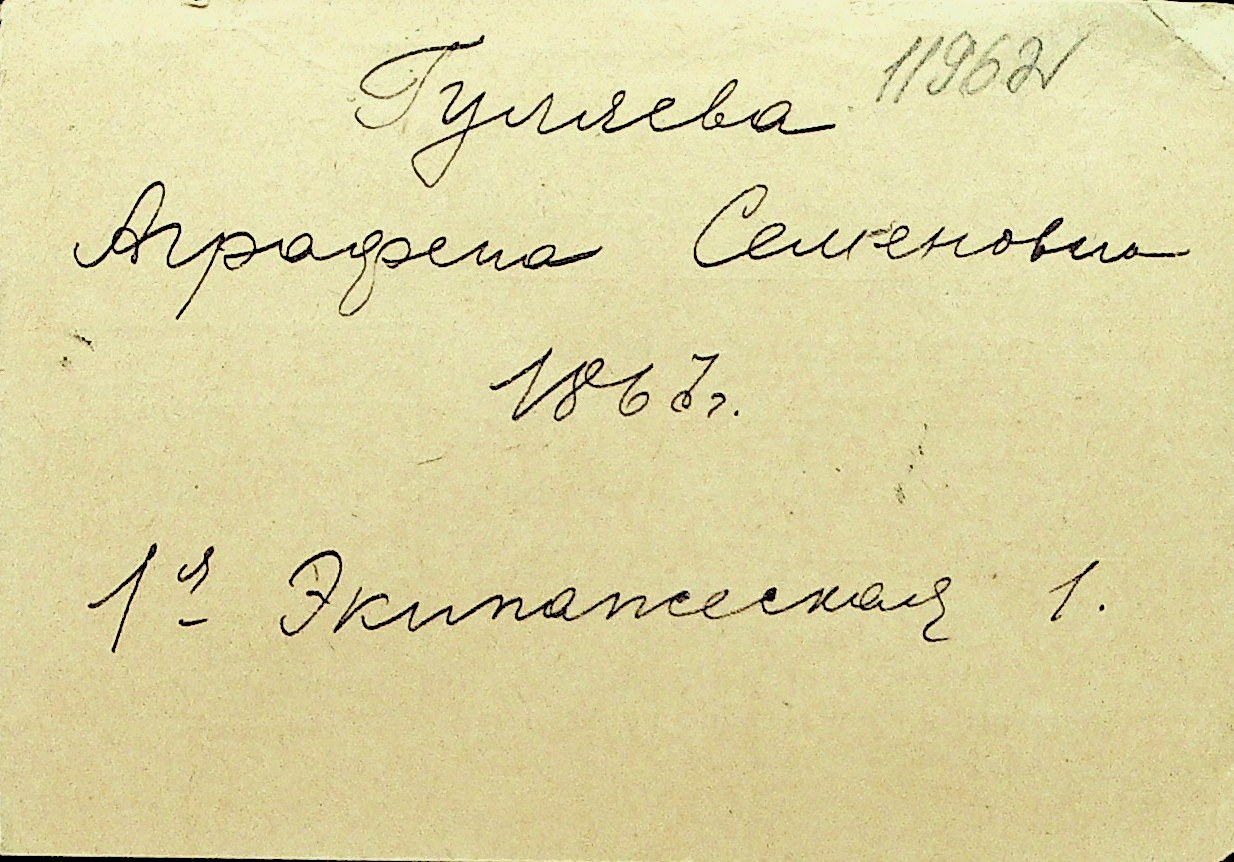 Гуляева 11962
Аграфена Семеновна
1867г.
1я Экипажеская 1.